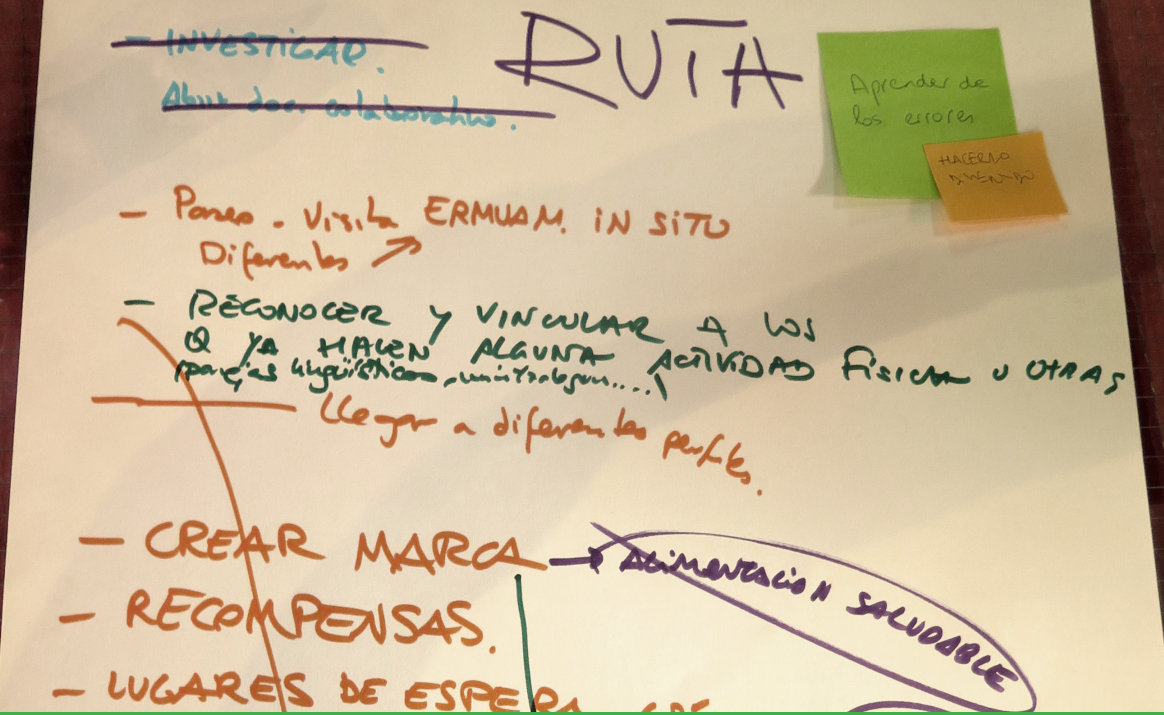 - INVESTIGAR.
Abrir doc. colaborativo.
RUTA
Aprender de
los errores
HACERLO
DIVERTIDO
- Paseo - Visita ERMUAM. IN SITU
Diferentes ↗
- RECONOCER Y VINCULAR A LOS
Q YA HACEN ALGUNA ACTIVIDAD FÍSICA U OTRAS
lingüísticas
- Llegar a diferentes perfiles.
- CREAR MARCA → ALIMENTACION SALUDABLE
- RECOMPENSAS.
- LUGARES DE ESPERA